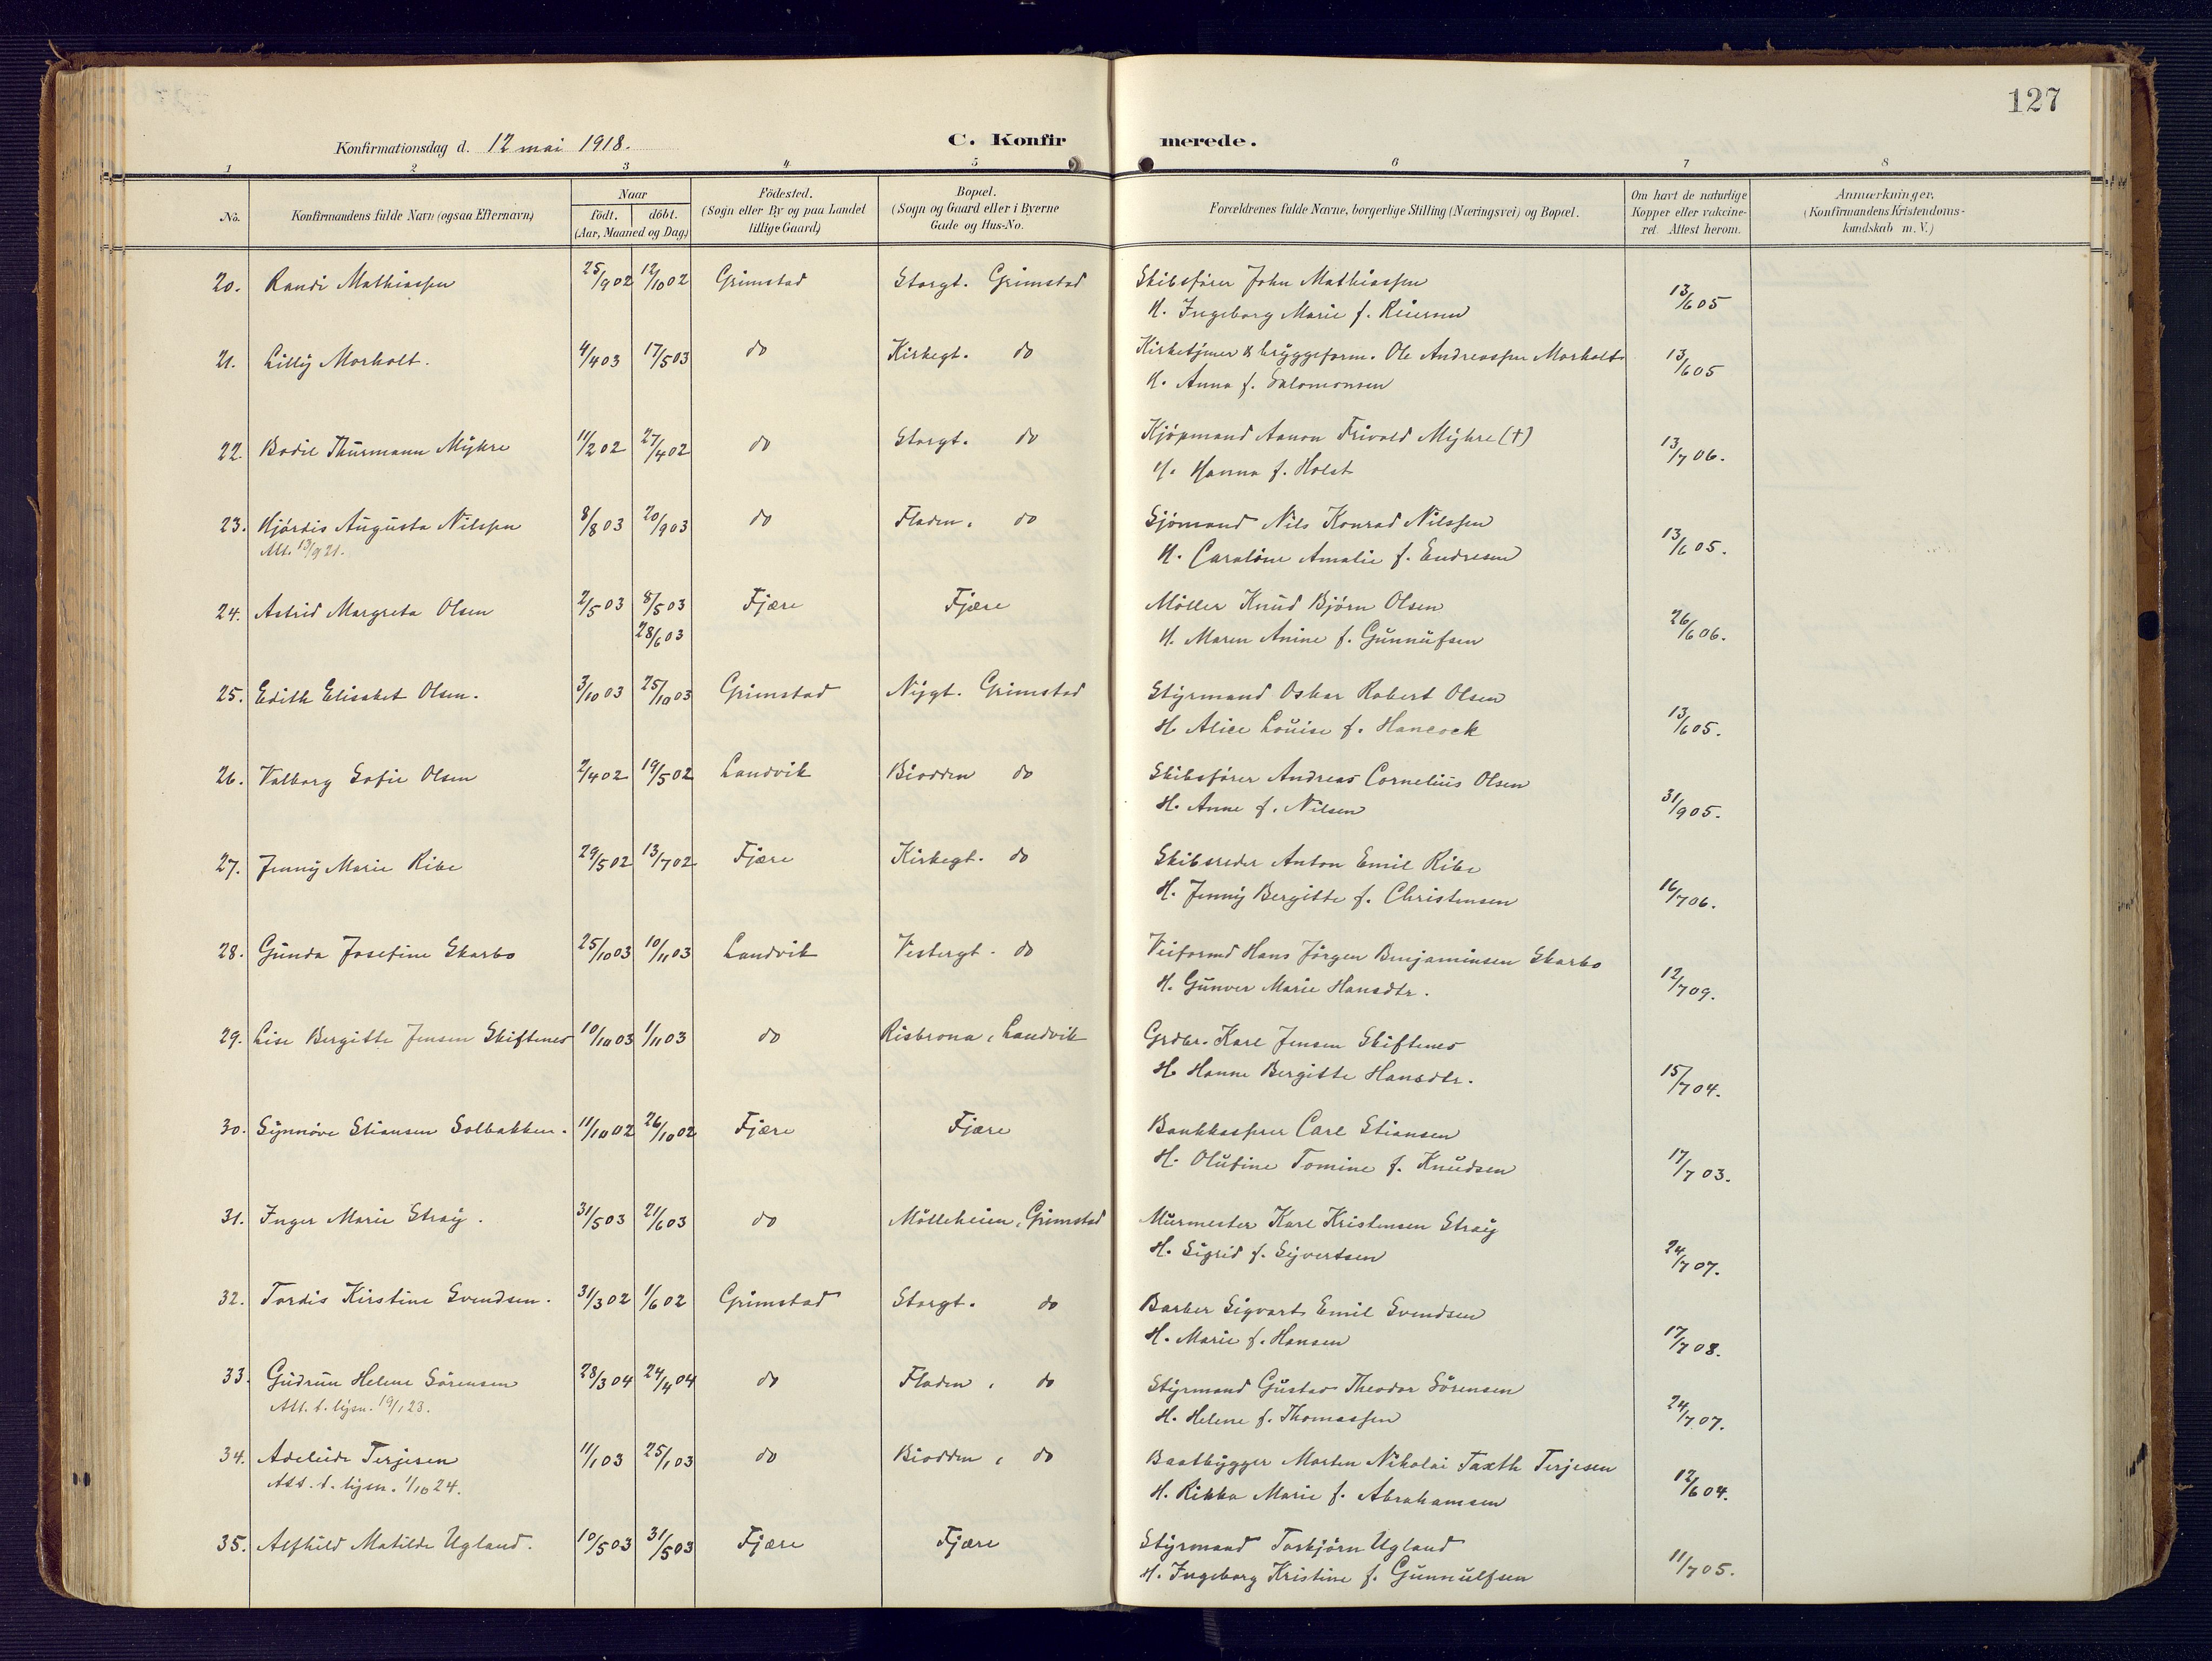 127
Konfirmationsdag d. 12 mai 1918.
C. Konfirmerede.
1 2 3 4 5 6 7 8
No. Konfirmandens fulde Navn (ogsaa Efternavn) Naar født. døbt. (Aar, Maaned og Dag) Födested. (Sogn eller By og paa Landet tillige Gaard) Bopæl. (Sogn og Gaard eller i Byerne Gade og Hus-No. Forældrenes fulde Navne, borgerlige Stilling (Næringsvei) og Bopæl. Om havt de naturlige Kopper eller vakcineret. Attest herom. Anmærkninger. (Konfirmandens Kristendomskundskab m. V.)
20. Randi Mathiassen 25/9 02 12/10 02 Grimstad Storgt. Grimstad Skibsfører John Mathiassen
H. Ingeborg Marie f. Reiersen 13/6 05
21. Lilly Morholt. 4/4 03 17/5 03 do Kirkegt. do Kirketjener & bryggeform. Ole Andreassen Morholt
H. Anna f. Salomonsen 13/6 05
22. Bodil Thurmann Myhre 11/2 02 27/4 02 do Storgt. do Kjøpmand Aanon Frivold Myhre (†)
H. Hanna f. Holst 13/7 06.
23. Hjördis Augusta Nilssen 8/8 03 20/9 03 do Fladen, do Sjömand Nils Konrad Nilssen
Att. 13/9 21. H. Caroline Amalie f. Endresen 13/6 05.
24. Astrid Margreta Olsen 2/5 03 8/5 03 Fjære Fjære Möller Knud Björn Olsen
28/6 03 H. Maren Anine f. Gunnufsen 26/6 06.
25. Edith Elisabet Olsen. 3/10 03 25/10 03 Grimstad Nygt. Grimstad Styrmand Oskar Robert Olsen
H. Alice Louise f. Hancock 13/6 05.
26. Valborg Sofie Olsen 2/4 02 19/5 02 Landvik Biodden do Skibsfører Andreas Cornelius Olsen
H. Anne f. Nilsen 31/9 05.
27. Jenny Marie Ribe 29/5 02 13/7 02 Fjære Kirkegt. do Skibsreder Anton Emil Ribe
H. Jenny Bergitte f. Christensen 16/7 06.
28. Gunda Josefine Skarbo 25/10 03 10/11 03 Landvik Vestergt. do Veiformd Hans Jörgen Benjaminsen Skarbo
H. Gunver Marie Hansdtr. 12/7 09.
29. Lise Bergitte Jensen Skiftenes 10/10 03 1/11 03 do Risbrona, Landvik Grdbr. Karl Jensen Skiftenes
H. Hanne Bergitte Hansdtr. 15/7 04.
30. Synnöve Stiansen Solbakken. 11/10 02 26/10 02 Fjære Fjære Bankkasserer Carl Stiansen
H. Olufine Tomine f. Knudsen 17/7 03.
31. Inger Marie Stray. 31/5 03 21/6 03 do Mölleheien, Grimstad Murmester Karl Kristensen Stray
H. Sigrid f. Syvertsen 24/7 07.
32. Tordis Kirstine Svendsen. 31/3 02 1/6 02 Grimstad Storgt. do Barber Sigvart Emil Svendsen
H. Marie f. Hansen 17/7 08.
33. Gudrun Helene Sörensen 28/3 04 24/4 04 do Fladen, do Styrmand Gustav Theodor Sörensen
Att. t. lysn. 19/1 23. H. Helene f. Thomassen 24/7 07.
34. Adeleide Terjesen 11/1 03 25/1 03 do Biodden, do Baatbygger Morten Nikolai Taxth Terjesen
Att. t. lysn. 1/10 24. H. Rikka Marie f. Abrahamsen 12/6 04.
35. Alfhild Matilde Ugland. 10/5 03 31/5 03 Fjære Fjære Styrmand Torbjörn Ugland
H. Ingeborg Kristine f. Gunnulfsen 11/7 05.